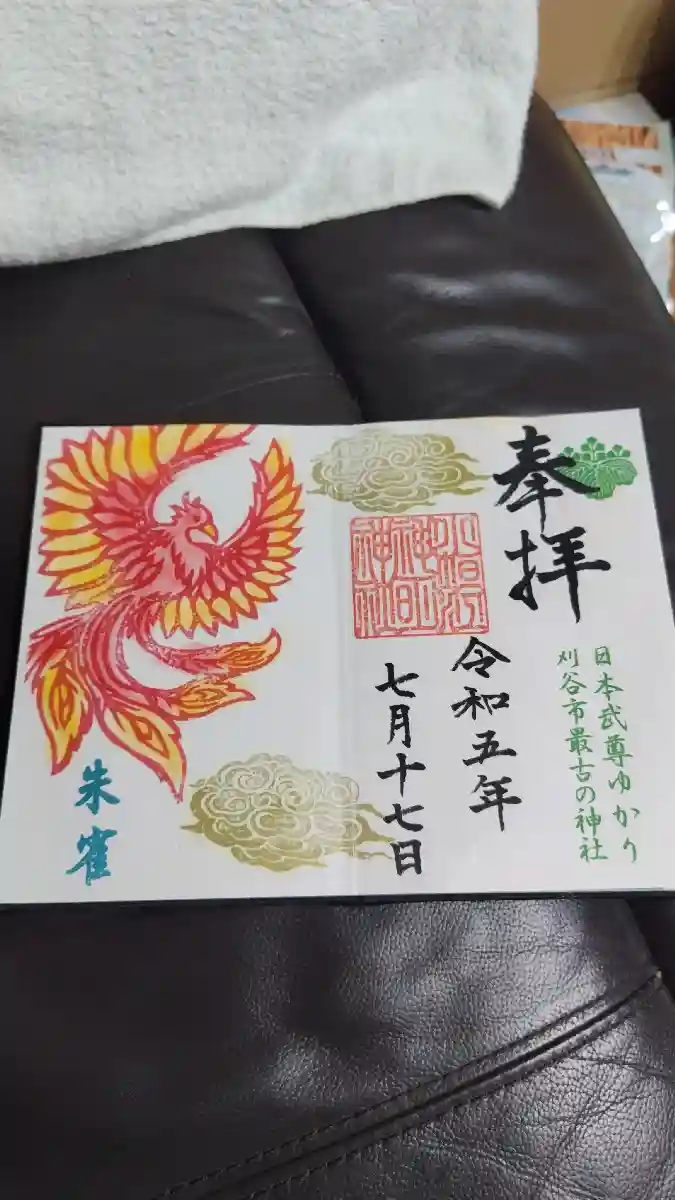 奉拝
日本武尊ゆかり
刈谷市最古の神社
小垣江
神明
神社
令和五年
七月十七日
朱雀